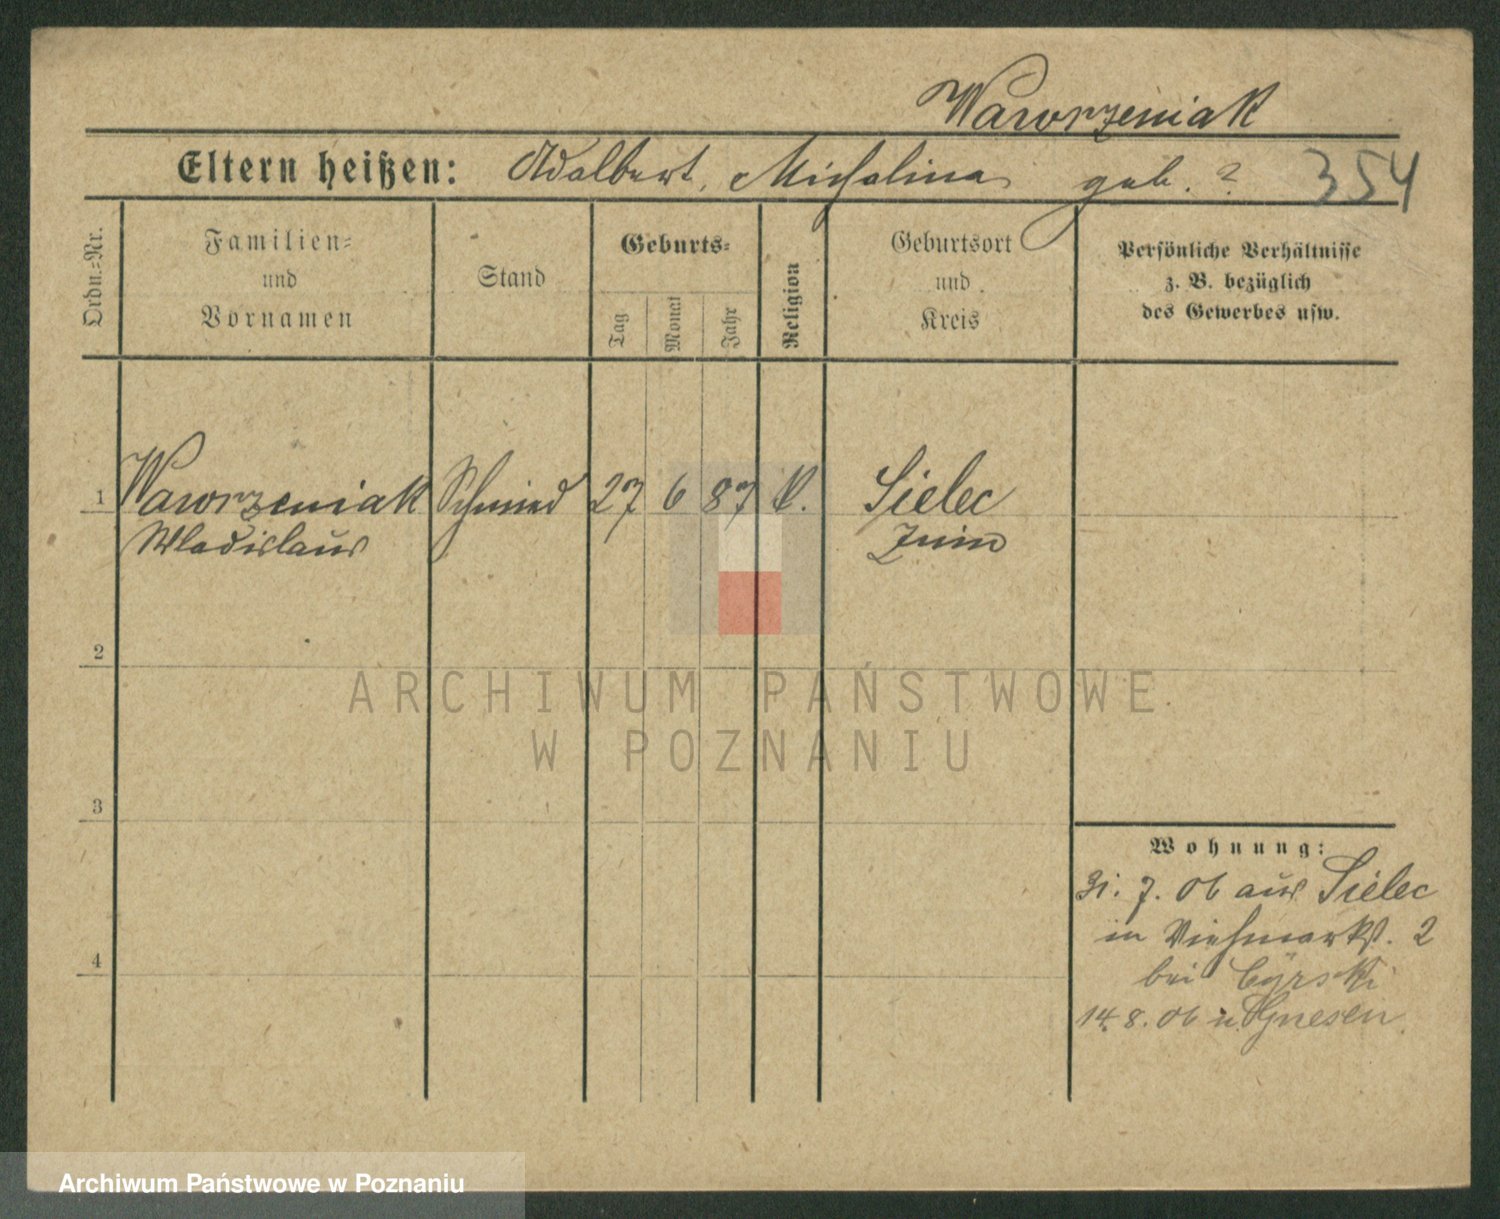 Wawrzeniak
Eltern heißen: Adalbert, Michalina geb. ? 354
Ordn.=Nr.
Familien=
und
Vornamen
Stand
Geburts=
Tag
Monat
Jahr
Religion
Geburtsort
und
Kreis
Persönliche Verhältnisse
z. B. bezüglich
des Gewerbes usw.
1 Wawrzeniak Schmied 27 6 87 K. Sielec
Wladislaus Znin
2
3
4
Wohnung:
31. 7. 06 aus Sielec
in Viehmarkt. 2
bei Cyrski
14. 8. 06 n. Gnesen
ARCHIWUM PAŃSTWOWE
W POZNANIU
Archiwum Państwowe w Poznaniu